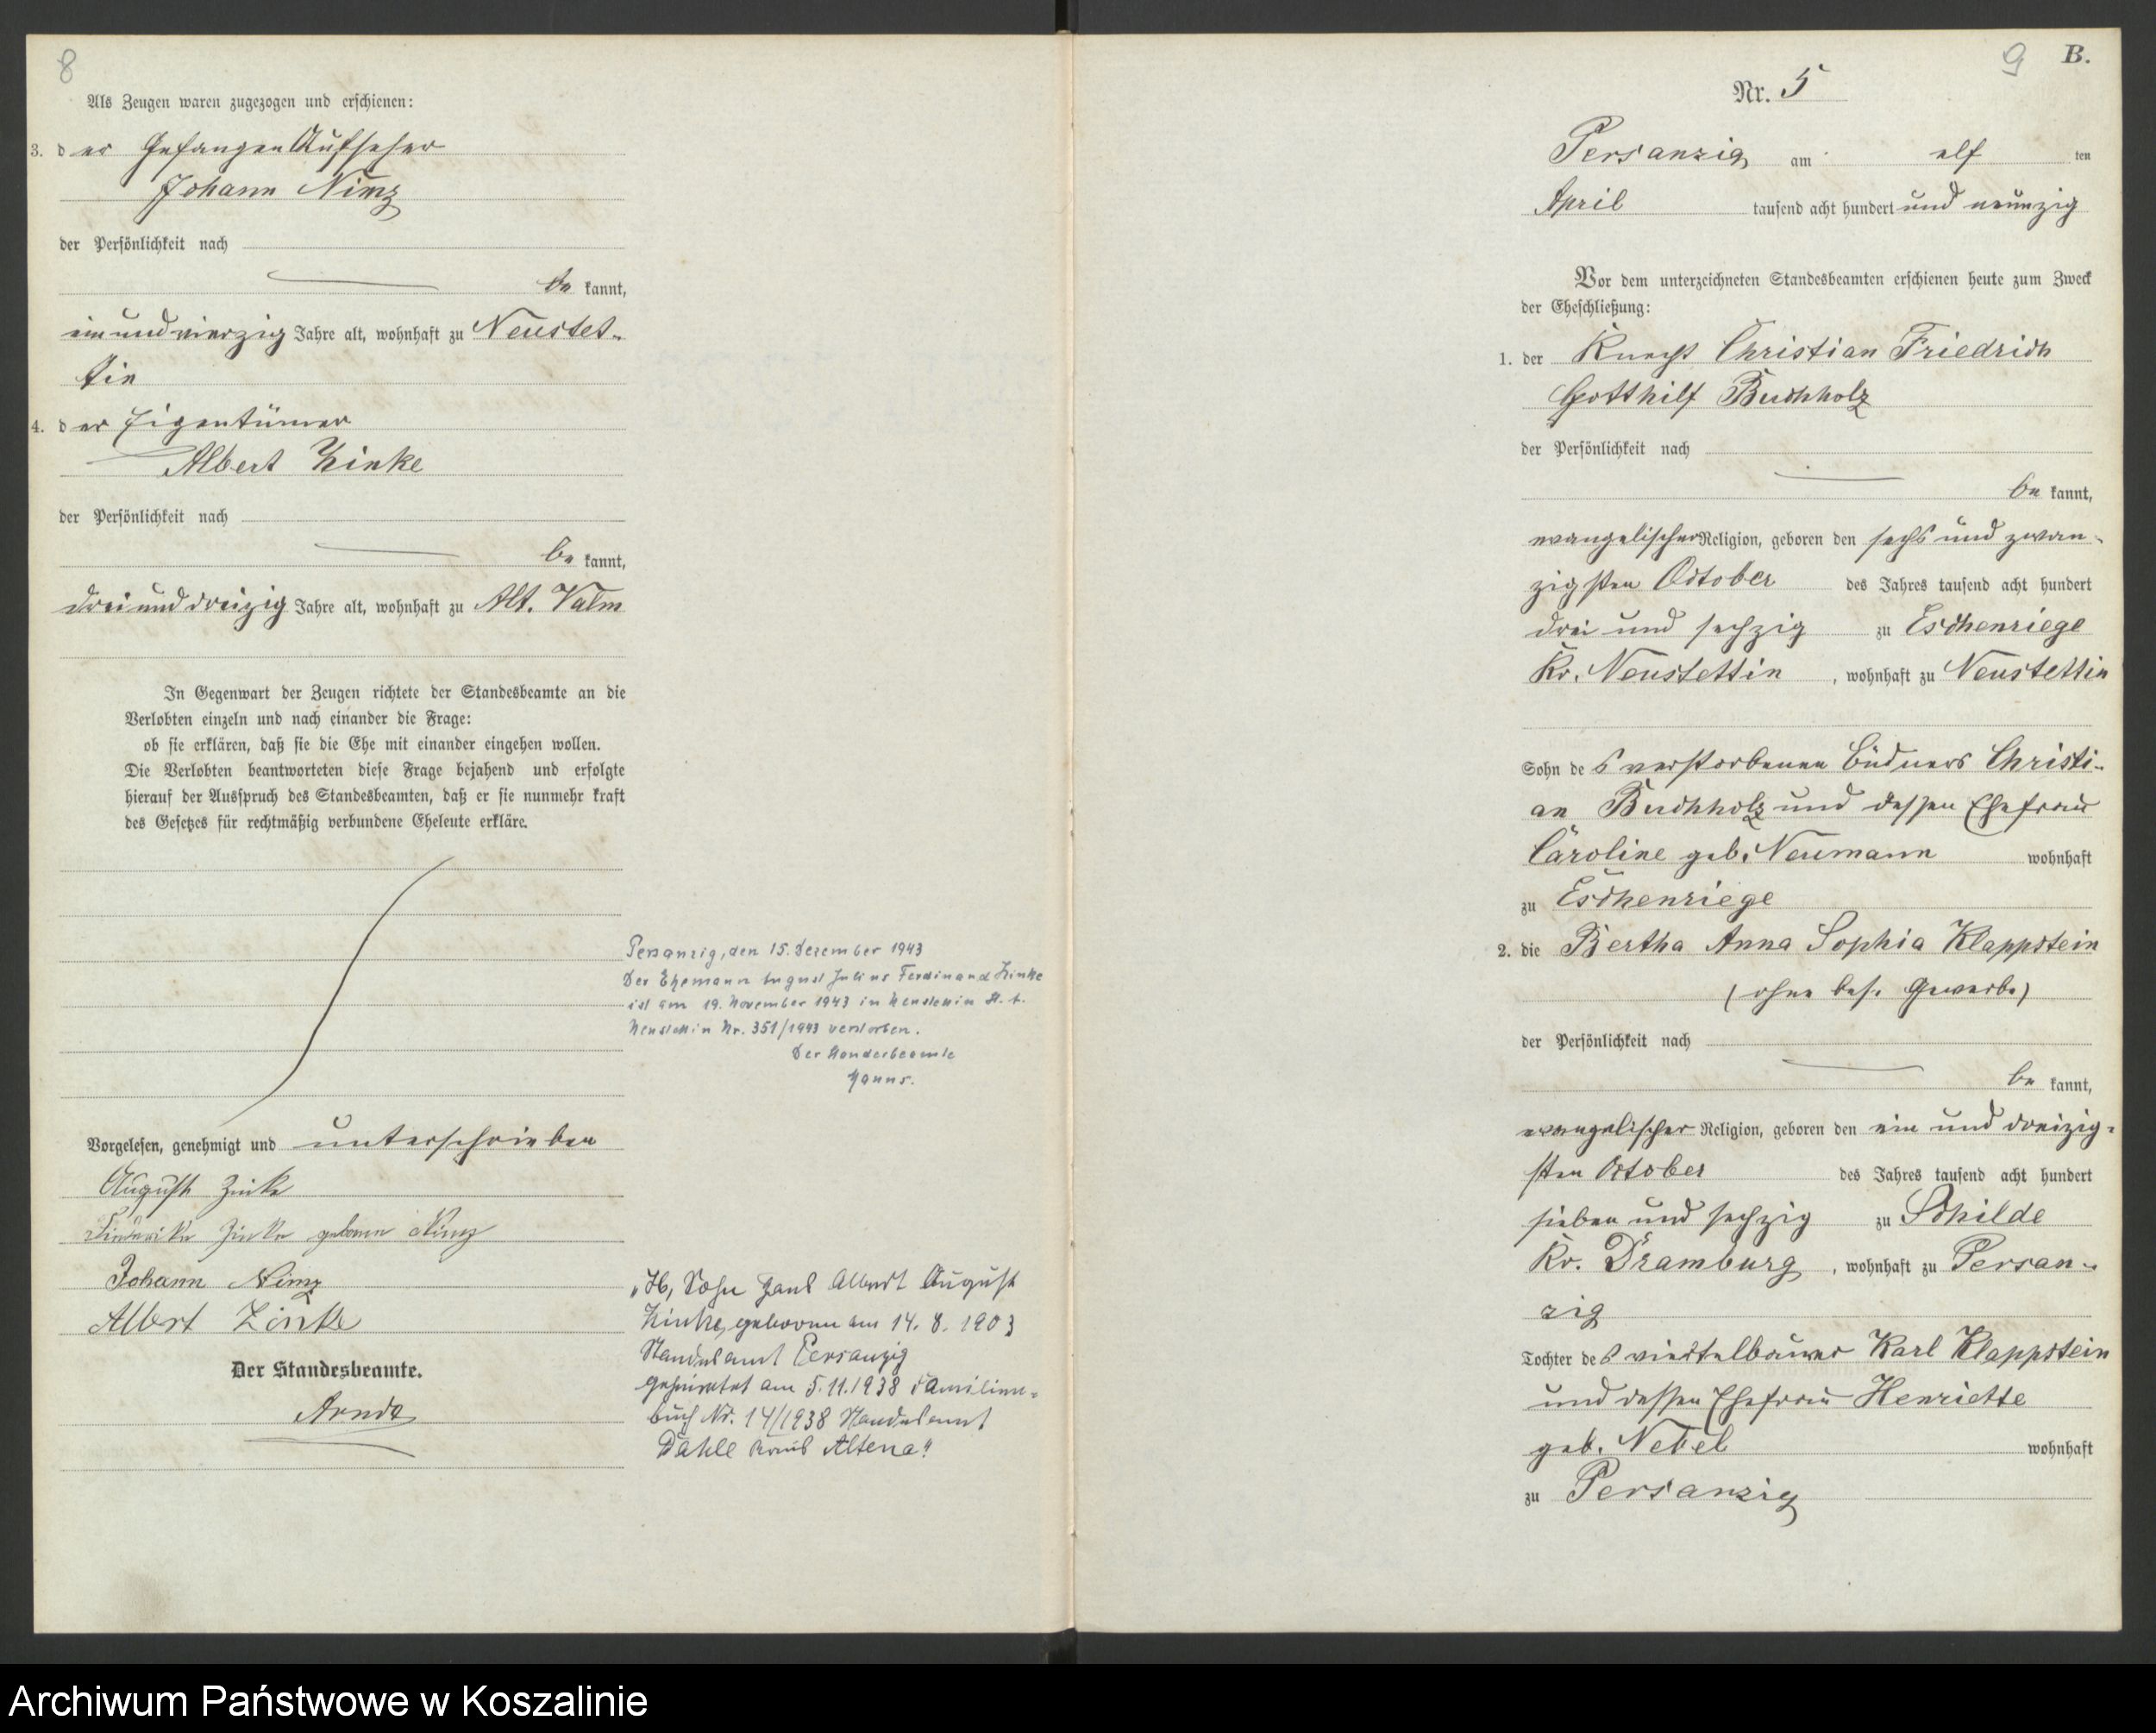 8
Als Zeugen waren zugezogen und erschienen:
3. der Gefangen Aufseher
Johann Nimz
der Persönlichkeit nach
be kannt,
ein und vierzig Jahre alt, wohnhaft zu Neustet-
tin
4. der Eigentümer
Albert Zinke
der Persönlichkeit nach
be kannt,
drei und dreizig Jahre alt, wohnhaft zu Alt. Valm
In Gegenwart der Zeugen richtete der Standesbeamte an die
Verlobten einzeln und nach einander die Frage:
ob sie erklären, daß sie die Ehe mit einander eingehen wollen.
Die Verlobten beantworteten diese Frage bejahend und erfolgte
hierauf der Ausspruch des Standesbeamten, daß er sie nunmehr kraft
des Gesetzes für rechtmäßig verbundene Eheleute erkläre.
Persanzig, den 15. Dezember 1943
Der Ehemann August Julius Ferdinand Zinke
ist am 19. November 1943 in Neustettin St. A.
Neustettin Nr. 351/1943 verstorben.
Der Standesbeamte
Vorgelesen, genehmigt und unterschrieben
August Zinke
Friederike Zinke geborene Nimz
Johann Nimz
Albert Zinke
Der Standesbeamte.
Arndt
Sohn Paul Albert August
Zinke, geboren am 14. 8. 1903
Standesamt Persanzig
geheiratet am 5.11.1938 Familien-
buch Nr. 14/1938 Standesamt
Dahle Kreis Altena"
9 B.
Nr. 5
Persanzig am elf ten
April tausend acht hundert und neunzig
Vor dem unterzeichneten Standesbeamten erschienen heute zum Zweck
der Eheschließung:
1. der Knecht Christian Friedrich
Gotthilf Buchholz
der Persönlichkeit nach
be kannt,
evangelischer Religion, geboren den sechs und zwan-
zigsten October des Jahres tausend acht hundert
drei und sechzig zu Eschenriege
Kr. Neustettin, wohnhaft zu Neustettin
Sohn des verstorbenen Büdners Christi-
an Buchholz und dessen Ehefrau
Caroline geb. Neumann wohnhaft
zu Eschenriege
2. die Bertha Anna Sophia Klappstein
(ohne bes. Gewerbe)
der Persönlichkeit nach
be kannt,
evangelischer Religion, geboren den ein und dreizig-
sten October des Jahres tausend acht hundert
sieben und sechzig zu Schilde
Kr. Dramburg, wohnhaft zu Persan-
zig
Tochter des Viertelbauer Karl Klappstein
und dessen Ehefrau Henriette
geb. Nebel wohnhaft
zu Persanzig
Archiwum Państwowe w Koszalinie